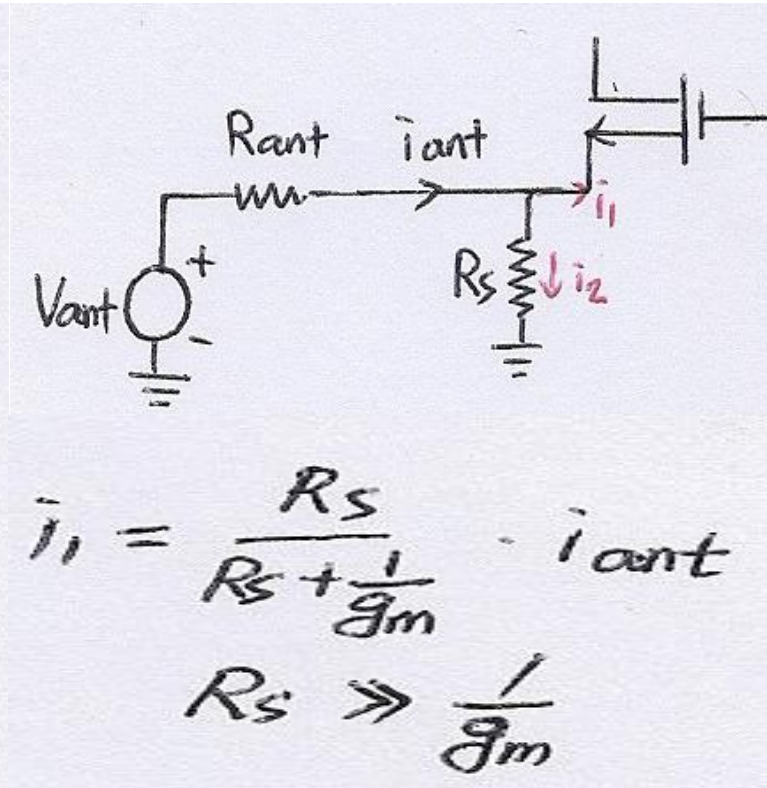 Rant iant
i₁
Vant + -
Rs i₂
i₁ = Rs / (Rs + 1/gm) · iant
Rs ≫ 1/gm